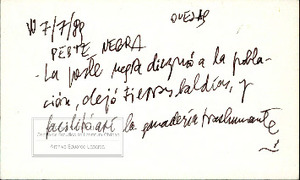 7/7/89
PESTE NEGRA
- La peste negra diezmó a la pobla-
ción, dejó tierras baldías, y
facilitó así la ganadería trashumante
Archivo Eduardo